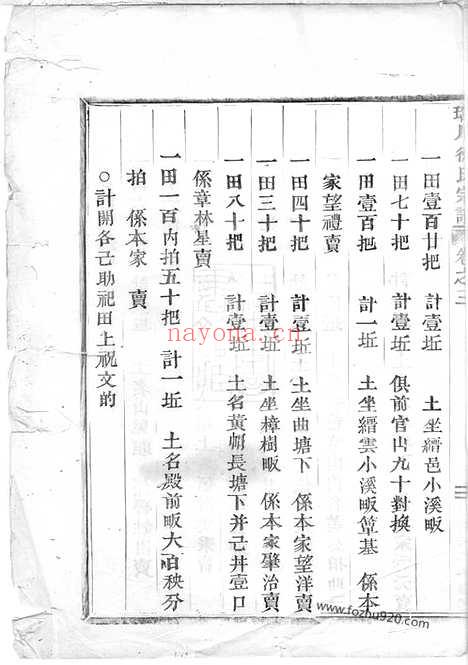 一田壹百廿把　計壹坵　土坐縉邑小溪畈
一田七十把　計壹坵　俱前官山九十對換
一田壹百把　計一坵　土坐縉雲小溪畈篁基　係本
家望禮賣
一田四十把　計壹坵　土坐曲塘下　係本家望洋賣
一田三十把　計壹坵　土坐樟樹畈　係本家肇治賣
一田八十把　計壹坵　土名黃帽長塘下并己井壹口
係章林星賣
一田一百內拍五十把　計一坵　土名殿前畈大百秧分
拍　係本家　賣
○計開各己助祀田上祝文的
nayona.cn
www.fozhu920.com